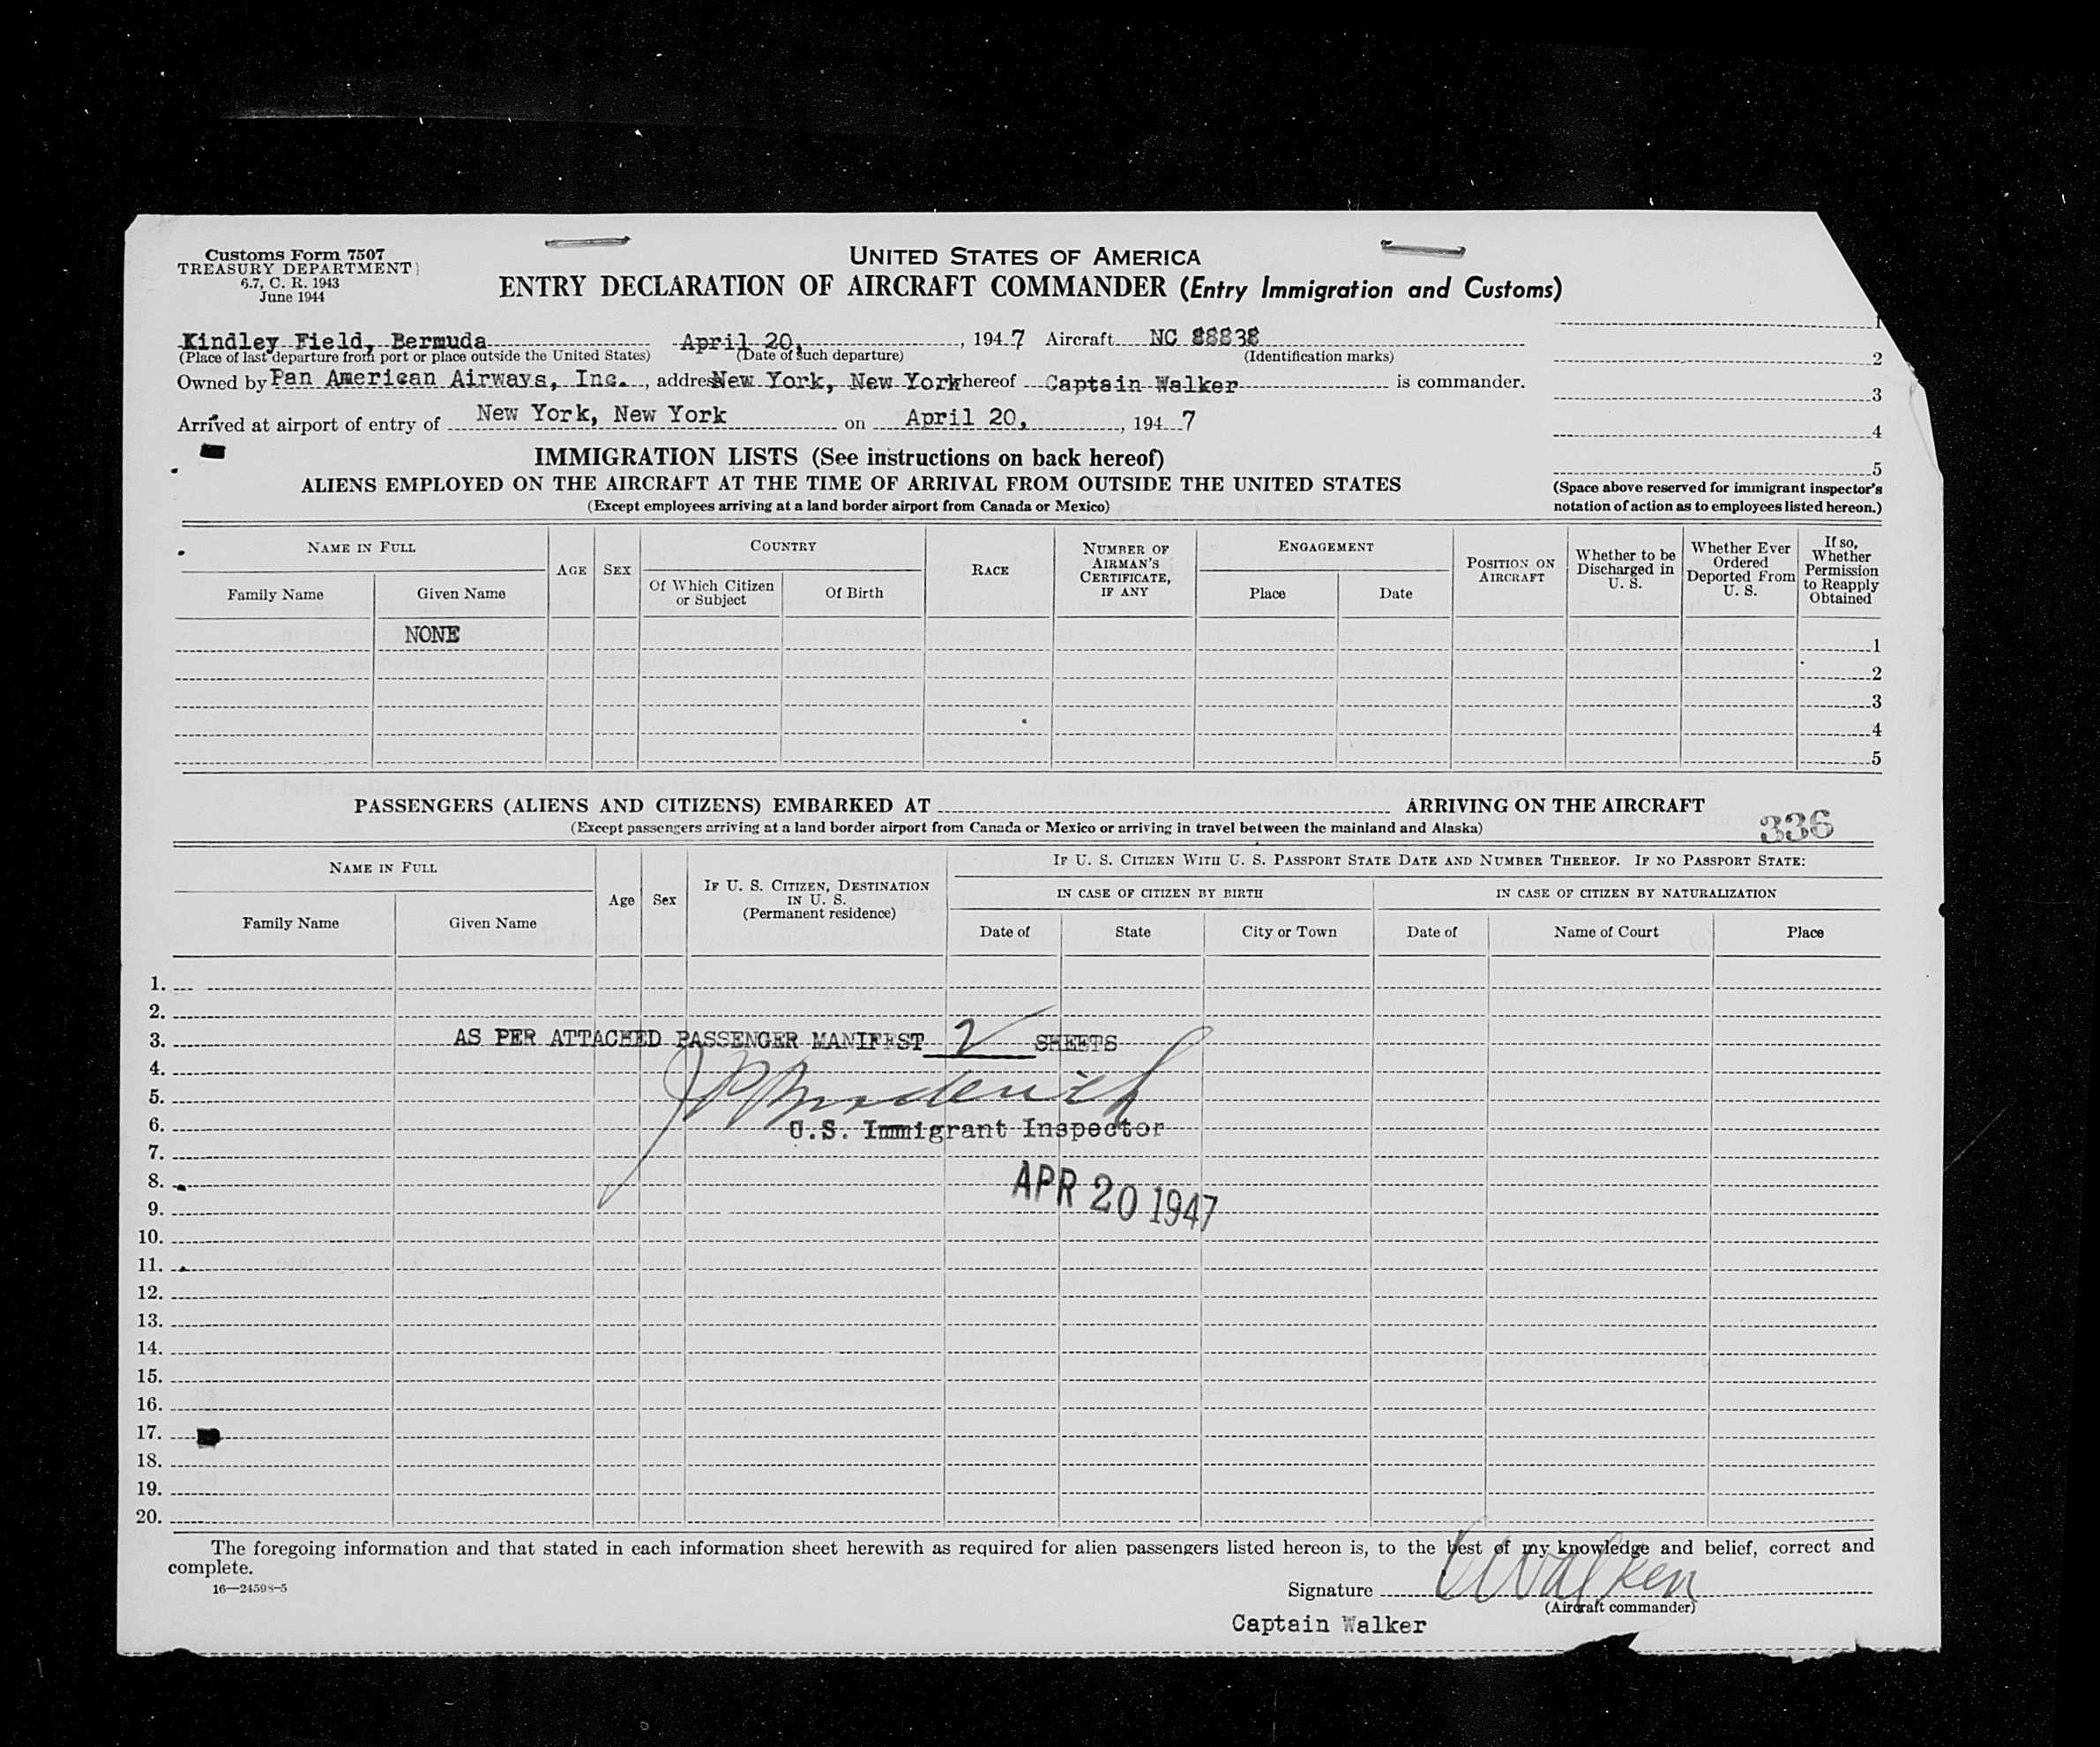 Customs Form 7507
TREASURY DEPARTMENT
6.7, C. R. 1943
June 1944
UNITED STATES OF AMERICA
ENTRY DECLARATION OF AIRCRAFT COMMANDER (Entry Immigration and Customs)
Kindley Field, Bermuda April 20, , 1947 Aircraft NC 88838
(Place of last departure from port or place outside the United States) (Date of such departure) (Identification marks)
Owned by Pan American Airways, Inc. , address New York, New York hereof Captain Walker is commander.
Arrived at airport of entry of New York, New York on April 20, , 1947
1
2
3
4
5
(Space above reserved for immigrant inspector's
notation of action as to employees listed hereon.)
IMMIGRATION LISTS (See instructions on back hereof)
ALIENS EMPLOYED ON THE AIRCRAFT AT THE TIME OF ARRIVAL FROM OUTSIDE THE UNITED STATES
(Except employees arriving at a land border airport from Canada or Mexico)
NAME IN FULL
Family Name
Given Name
AGE
SEX
COUNTRY
Of Which Citizen
or Subject
Of Birth
RACE
NUMBER OF
AIRMAN'S
CERTIFICATE,
IF ANY
ENGAGEMENT
Place
Date
POSITION ON
AIRCRAFT
Whether to be
Discharged in
U. S.
Whether Ever
Ordered
Deported From
U. S.
If so,
Whether
Permission
to Reapply
Obtained
NONE
1
2
3
4
5
PASSENGERS (ALIENS AND CITIZENS) EMBARKED AT ARRIVING ON THE AIRCRAFT
(Except passengers arriving at a land border airport from Canada or Mexico or arriving in travel between the mainland and Alaska)
336
NAME IN FULL
Family Name
Given Name
Age
Sex
IF U. S. CITIZEN, DESTINATION
IN U. S.
(Permanent residence)
IF U. S. CITIZEN WITH U. S. PASSPORT STATE DATE AND NUMBER THEREOF. IF NO PASSPORT STATE:
IN CASE OF CITIZEN BY BIRTH
IN CASE OF CITIZEN BY NATURALIZATION
Date of
State
City or Town
Date of
Name of Court
Place
1.
2.
3. AS PER ATTACHED PASSENGER MANIFEST 2 SHEETS
4.
5.
6. U.S. Immigrant Inspector
7.
8. APR 20 1947
9.
10.
11.
12.
13.
14.
15.
16.
17.
18.
19.
20.
The foregoing information and that stated in each information sheet herewith as required for alien passengers listed hereon is, to the best of my knowledge and belief, correct and
complete.
16—24598-5
Signature Walker
(Aircraft commander)
Captain Walker